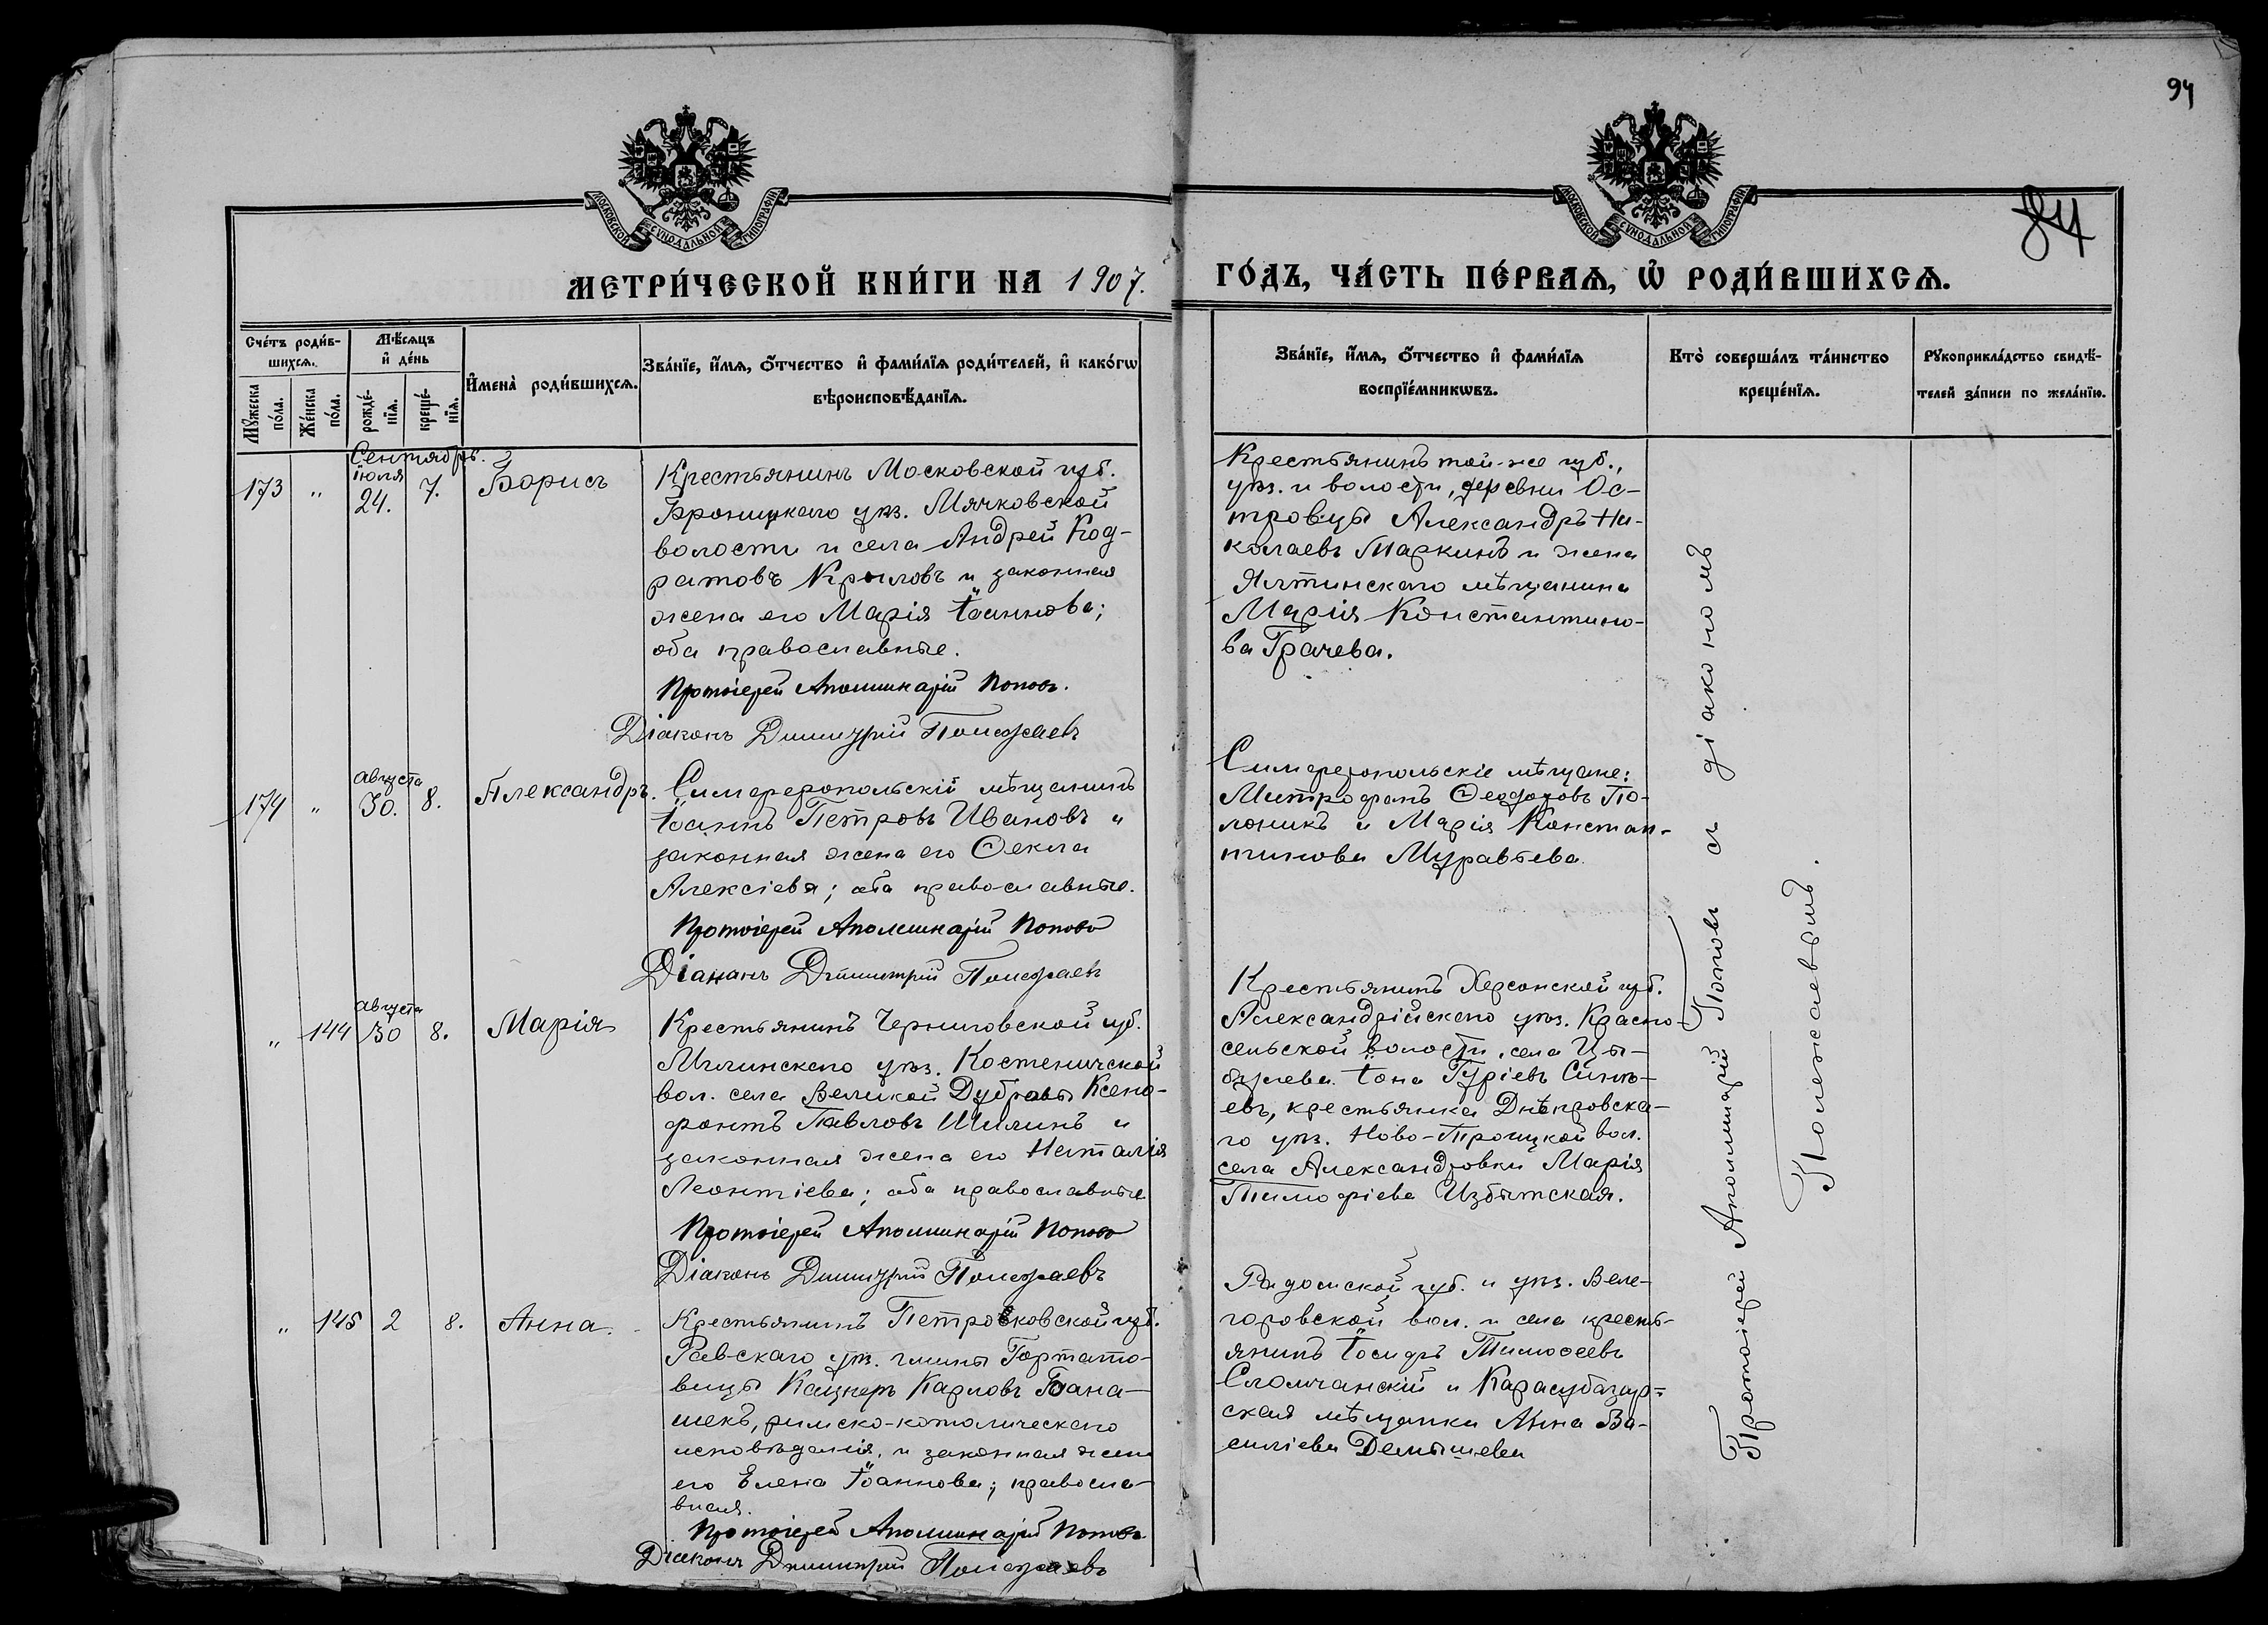 94
84
МОСКОВСКОЙ СѴНОДАЛЬНОЙ ТИПОГРАФІИ
МОСКОВСКОЙ СѴНОДАЛЬНОЙ ТИПОГРАФІИ
МЕТРИ́ЧЕСКОЙ КНИ́ГИ НА 1907.
ГО́ДЪ, ЧА́СТЬ ПЕ́РВАѦ, Ѡ҆ РОДИ́ВШИХСѦ.
Сче́тъ роди́в-
шихсѧ.
Мꙋжеска по́ла.
Же́нска по́ла.
Мѣ́сѧцъ
и҆ де́нь
рожде́-
нїѧ.
креще́-
нїѧ.
И҆мена̀ роди́вшихсѧ.
Зва́нїе, и҆́мѧ, ѻ҆́тчество и҆ фами́лїѧ роди́телей, и҆ како́гѡ
вѣроисповѣ́данїѧ.
Зва́нїе, и҆́мѧ, ѻ҆́тчество и҆ фами́лїѧ
воспрїе́мникѡвъ.
Кто̀ соверша́лъ та́инство
креще́нїѧ.
Рꙋкоприкла́дство свидѣ́-
телей за́писи по жела́нїю.
Сентябрь.
173 " іюля 24. 7. Борисъ
Крестьянинъ Московской губ.
Бронницкаго уѣз. Мячковской
волости и села Андрей Код-
ратовъ Крыловъ и законная
жена его Марія Іоаннова;
оба православные.
Протоіерей Аполлинарій Поповъ.
Діаконъ Димитрій Полежаевъ
Крестьянинъ той-же губ.,
уѣз. и волости, деревни Ос-
тровцы Александръ Ни-
колаевъ Маркинъ и жена
Ялтинскаго мѣщанина
Марія Константино-
ва Грачева.
174 " августа 30. 8. Александръ.
Симферопольскій мѣщанинъ
Іоаннъ Петровъ Ивановъ и
законная жена его Ѳекла
Алексіева; оба православные.
Протоіерей Аполлинарій Поповъ
Діаконъ Димитрій Полежаевъ
Симферопольскіе мѣщане:
Митрофанъ Ѳеодоровъ По-
лоникъ и Марія Констан-
тинова Муравьева.
" 144 августа 30 8. Марія
Крестьянинъ Черниговской губ.
Мглинскаго уѣз. Костеничской
вол. села Великой Дубровы Ксено-
фонтъ Павловъ Шилинъ и
законная жена его Наталія
Леонтіева; оба православные
Протоіерей Аполлинарій Поповъ
Діаконъ Димитрій Полежаевъ
Крестьянинъ Херсонской губ.
Александрійскаго уѣз. Красно-
сельской волости, села Цы-
булева Іона Гуріевъ
крестьянка Днѣпровска-
го уѣз. Ново-Троицкой вол.
села Александровки Марія
Тимофіева Избытская.
" 145 2 8. Анна.
Крестьянинъ Петроковской губ.
Равскаго уѣз. гмины
Карловъ
римско-католическаго
исповѣданія, и законная жена
его Елена Іоаннова; правосла-
вная.
Протоіерей Аполлинарій Поповъ
Діаконъ Димитрій Полежаевъ
Радомской губ. и уѣз. Веле-
горовской вол. и села кресть-
янинъ Іосифъ Тимоѳеевъ
Сломчанскій и Карасубазар-
ская мѣщанка Анна Ва-
силіева Демышева
Протоіерей Аполлинарій Поповъ съ діакономъ
Полежаевымъ.